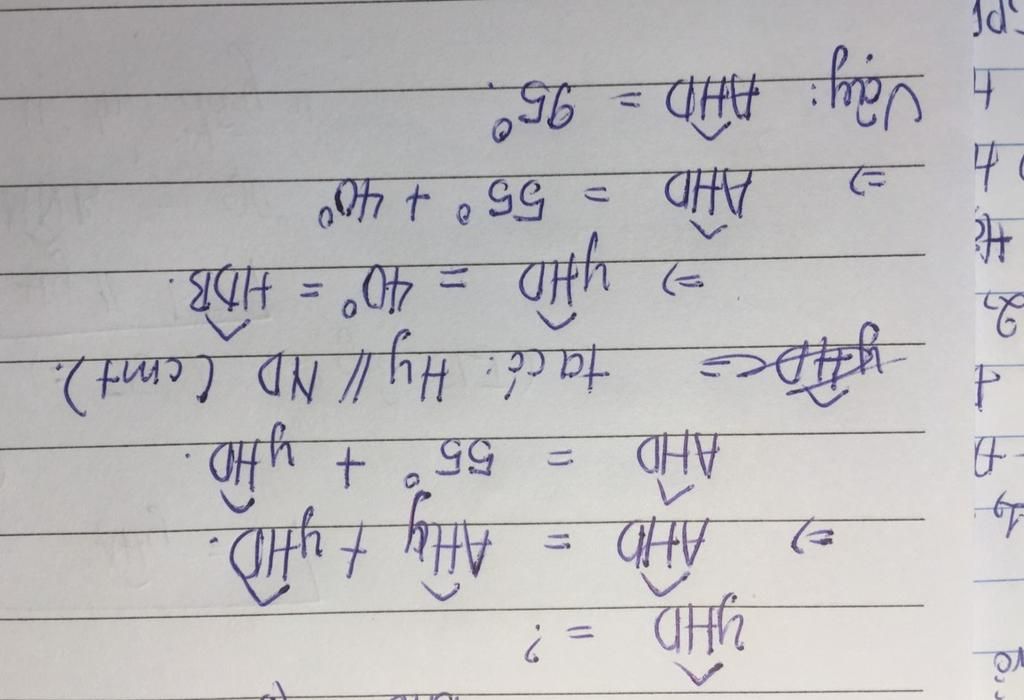 yHD = ?
=> AHD = AHy + yHD.
AHD = 55° + yHD.
ta có: Hy // ND (cmt).
=> yHD = 40° = HDB.
=> AHD = 55° + 40°
Vậy: AHD = 95°.